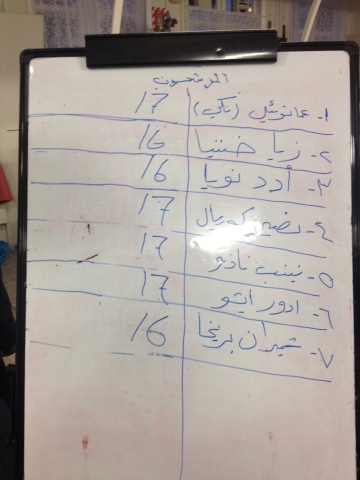 المرشحون
١- عمانوئيل (نكي) 17
٢- زيا خشيا 16
٣- أدد نويا 16
٤- نضير كوريال 17
٥- نينب نادر 17
٦- ادور ايشو 17
٧- شميران بريخا 16